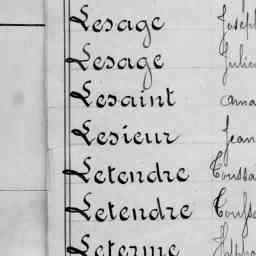 Lesage Joseph
Lesage Julien
Lesaint
Lesieur Jean
Letendre Toussai
Letendre Toussa
Leterme